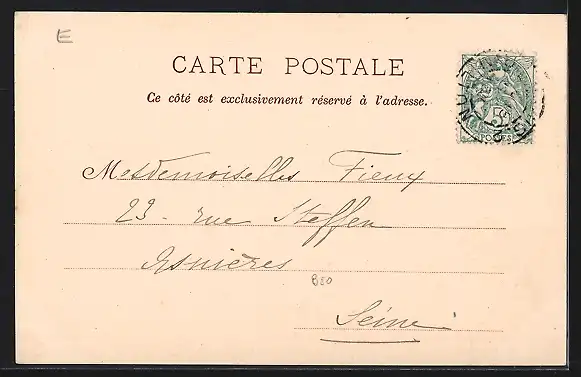 E
CARTE POSTALE
Ce côté est exclusivement réservé à l'adresse.
5
POSTES
Mesdemoiselles Fieux
23 - rue Steffen
Asnières
B50
Seine